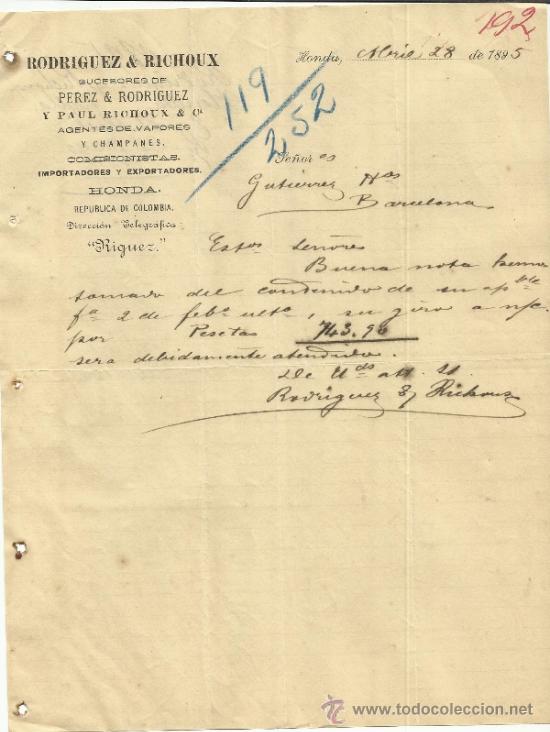 192
RODRIGUEZ & RICHOUX
SUCESORES DE
PEREZ & RODRIGUEZ
Y PAUL RICHOUX & Cª
AGENTES DE VAPORES
Y CHAMPANES.
COMISIONISTAS.
IMPORTADORES Y EXPORTADORES.
HONDA.
REPUBLICA DE COLOMBIA.
Dirección Telegráfica:
"Riguez."
119
252
Honda, Abril 28 de 1895
Señores
Gutiérrez Hos
Barcelona
Estos Señores
Buena nota hemos
tomado del contenido de su apble
fª 2 de febº ultº, su giro a n/c.
por Pesetas 743.90
sera debidamente atendido.
De Uds att. SS.
Rodriguez & Richoux
todocoleccion
www.todocoleccion.net